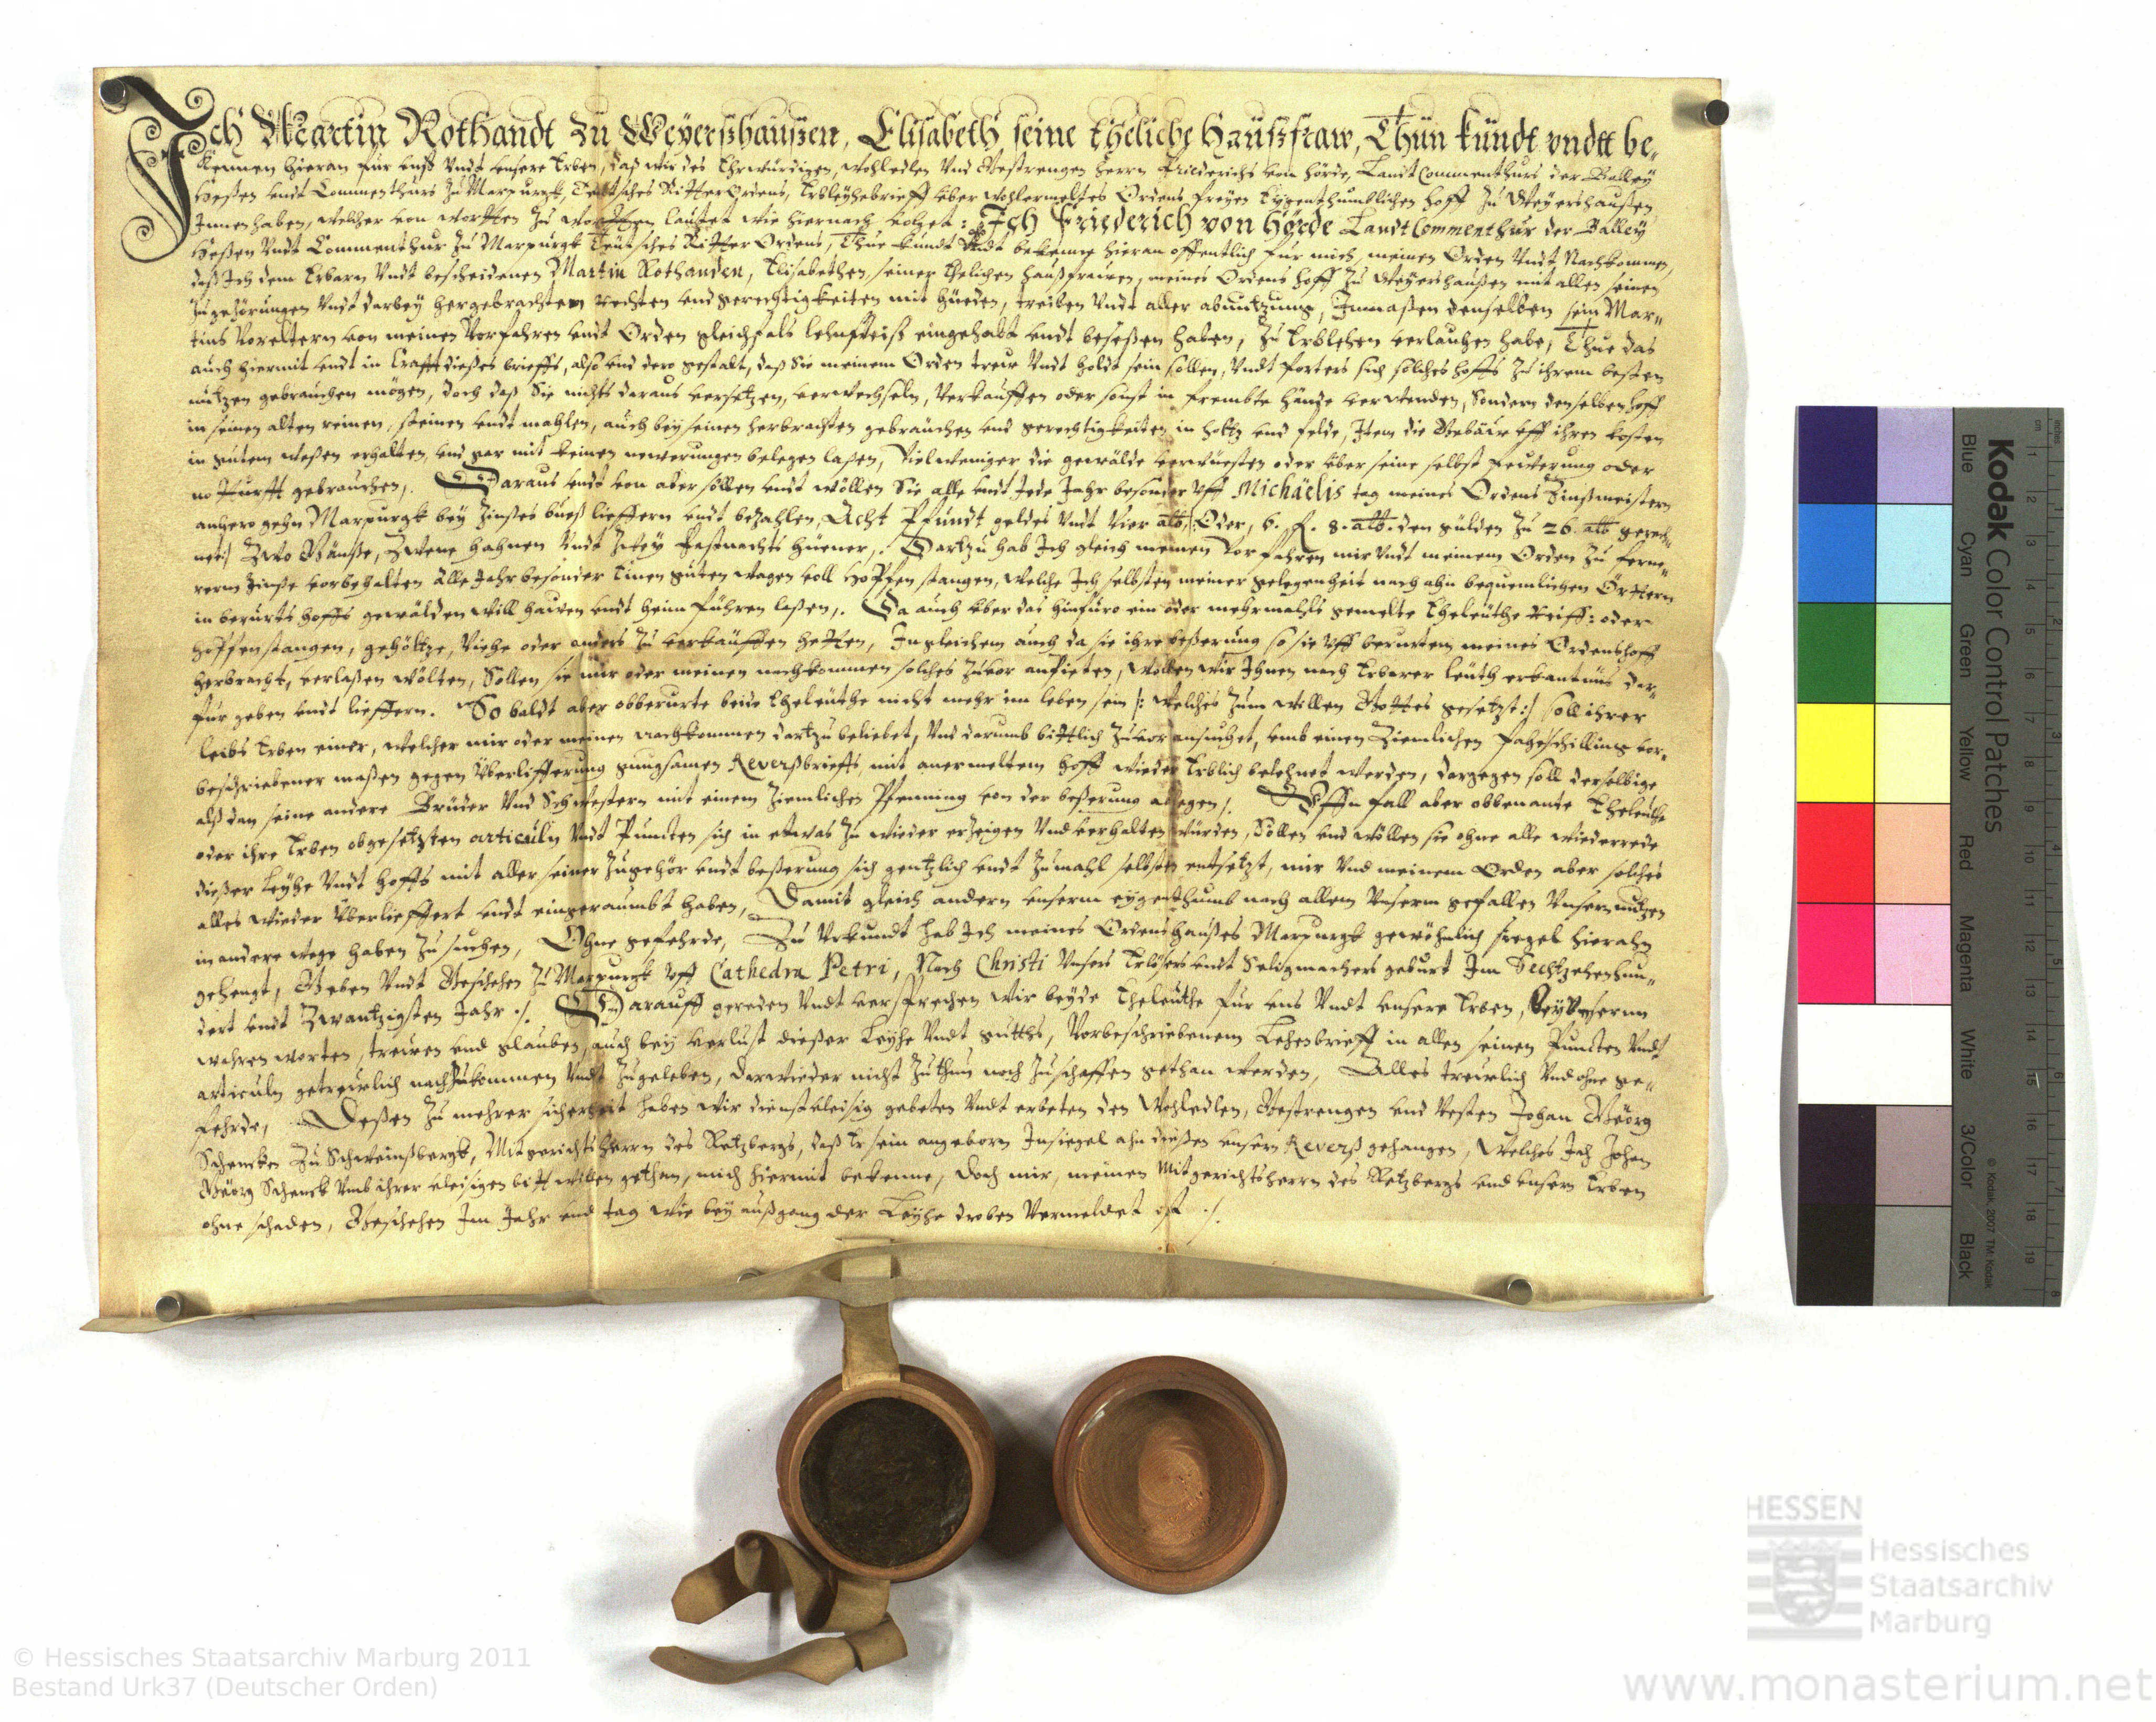 Ich Martin Rothandt zu Weÿerßhaußen, Elisabeth seine Eheliche Haußfraw, Thun kundt vndt be-
kennen hieran für vnß vndt vnsere Erben, daß wir des Ehrwürdigen, Wohledlen vnd Gestrengen Herrn Friederichs von Hörde, LandtCommenthurs der Balleÿ
Heßen vndt Commenthurs zu Marpurgk, Teutsches RitterOrdens, Erbleÿhebrieff vber wohlermeltes Ordens freÿen Eÿgenthumblichen hoff zu Weÿershaußen
Innen haben, welcher von wortten zu wortten lautet wie hiernach volget: Ich Friederich von Hörde LandtCommenthur der Balleÿ
Heßen vndt Commenthur zu Marpurgk Teutsches Ritter Ordens, Thue kundt vndt bekenne hieran offentlich für mich, meinen Orden vndt Nachkommen,
daß Ich dem Erbarn vndt bescheidenen Martin Rothanden, Elisabethen, seiner Ehelichen haußfrawen, meines Ordens hoff zu Weÿershaußen mit allen seinen
zugehörungen vndt darbeÿ hergebrachten rechten vnd gerechtigkeiten mit hüeden, treiben vndt aller abnutzung, Inmaßen denselben sein Mar-
tins Voreltern von meinen Vorfahren vndt Orden gleichfals lehnßweiß eingehabt vndt beseßen haben, zu Erblehen verlauhen habe, Thue das
auch hiermit vndt in Crafft dießes brieffs, also vnd dero gestalt, daß Sie meinem Orden trew vndt holdt sein sollen, vndt forters sich solches hoffs zu ihrem besten
nutzen gebrauchen mögen, doch daß Sie nichts daraus versetzen, verwechseln, verkauffen oder sonst in frembte hände verwenden, Sondern denselben hoff
in seinen alten reinen, steinen vndt mahlen, auch beÿ seinen herbrachten gebrauchen vnd gerechtigkeiten in holtz vnd felde, Item die Gebäw vff ihren kosten
in gutem weßen erhalten, vnd gar mit keinen newerungen belegen laßen, Viel weniger die gewälde verwüesten oder vber seine selbst fewerung oder
notturfft gebrauchen. Daraus vndt von aber sollen vndt wöllen Sie alle vndt Jede Jahr besonder vff Michaelis tag meines Ordens Zinßmeistern
anhero gehn Marpurgk beÿ Zinßes bueß lieffern vndt bezahlen, Acht Pfundt geldes vndt Vier alb, Oder, 6. fl. 8. alb. den gülden zu 26. alb gerech-
net, Zwo Gänße, Zwene Hahnen vndt Zweÿ Fastnachts hüener. Dartzu hab Ich gleich meinen Vorfahren mir vndt meinem Orden zu ferne-
rerm Zinße vorbehalten Alle Jahr besonder Einen guten wagen voll Hopffen stangen, welche Ich selbsten meiner gelegenheit nach ahn bequemlichen Örttern
in berürts hoffs gewälden will hawen vndt heim führen laßen. Da auch vber das hinfüro ein oder mehrmahls gemelte Eheleuthe Reiff: oder
hopffenstangen, gehöltze, Viehe oder anders zu verkauffen hetten, Ingleichem auch da sie ihre beßerung so sie vff berurtem meines Ordenshoff
herbracht, verlaßen wolten, Sollen sie mir oder meinen nachkommen solches zuvor anbieten, wollen wir Ihnen nach Erbarer leuth erkantnüs dar-
für geben vndt lieffern. So baldt aber obberurte beide Eheleuthe nicht mehr im leben sein /: welches zum willen Gottes gesetzt:/ soll ihrer
leibs Erben einer, welcher mir oder meinen nachkommen dartzu beliebet, vnd darumb bittlich zuvor ansuchet, vmb einen Ziemlichen faheschilling vor-
beschriebener maßen gegen Überlifferung gnugsamen Reverßbrieffs, mit anermeltem hoff wieder Erblich belehnet werden, dargegen soll derselbige
alß dan seine andere Brüder vnd Schwestern mit einem Ziemlichen Pfenning von der beßerung ablegen. Vffn fall aber obbenante Eheleuthe
oder ihre Erben obgesetzten articuln vndt Puncten sich in etwas zu wieder erzeigen vnd verhalten würden, Sollen vnd wöllen sie ohne alle wiederrede
dießer Leÿhe vndt hoffs mit aller seiner zugehör vndt beßerung sich gentzlich vndt zumahl selbsten entsetzt, mir vnd meinem Orden aber solches
alles wieder Überlieffert vndt eingeraumbt haben, Damit gleich andern vnserm eÿgenthumb nach allem vnserm gefallen vnsern nutzen
in andere wege haben zu suchen, Ohne gefehrde, Zu Vrkundt hab Ich meines Ordenshaußes Marpurgk gewöhnlich siegel hierahn
gehengt, Geben vndt Geschehen zu Marpurgk vff Cathedra Petri, Nach Christi vnsers Erlösers vndt Seligmachers geburt Im Sechtzehenhun-
dert vndt Zwantzigsten Jahr. Darauff gereden vndt versprechen wir beÿde Eheleuthe für vns vndt vnsere Erben, Beÿ vnserm
wahren worten, trewen vnd glauben, auch beÿ verlust dießer Leÿhe vndt gutths, Vorbeschriebenem Lehenbrieff in allen seinen Puncten vndt
articuln getrewlich nachzukommen vndt zugeleben, darwieder nicht zuthun noch zuschaffen gethan werden, Alles trewlich vnd ohne ge-
fehrde, Deßen zu mehrer sicherheit haben wir dienstvleisig gebeten vndt erbeten den Wohledlen, Gestrengen vnd Vesten Johan Geörg
Schencken zu Schweinßbergk, Mitgerichtsherrn des Retzbergs, daß Er sein angeborn Insiegel ahn dießen vnsern Reverß gehangen, Welches Ich Johan
Geörg Schenck vmb ihrer vleisigen bitt willen gethan, mich hiermit bekenne, doch mir, meinen Mitgerichtsherrn des Retzbergs vnd vnsern Erben
ohne schaden, Geschehen Im Jahr vnd tag wie beÿ außgang der Leÿhe droben vermeldet ist.
Kodak Color Control Patches
Blue Cyan Green Yellow Red Magenta White 3/Color Black
© Kodak, 2007 TM: Kodak
cm 1 2 3 4 5 6 7 8 9 10 11 12 13 14 15 16 17 18 19
inches 1 2 3 4 5 6 7 8
HESSEN
Hessisches
Staatsarchiv
Marburg
© Hessisches Staatsarchiv Marburg 2011
Bestand Urk37 (Deutscher Orden)
www.monasterium.net